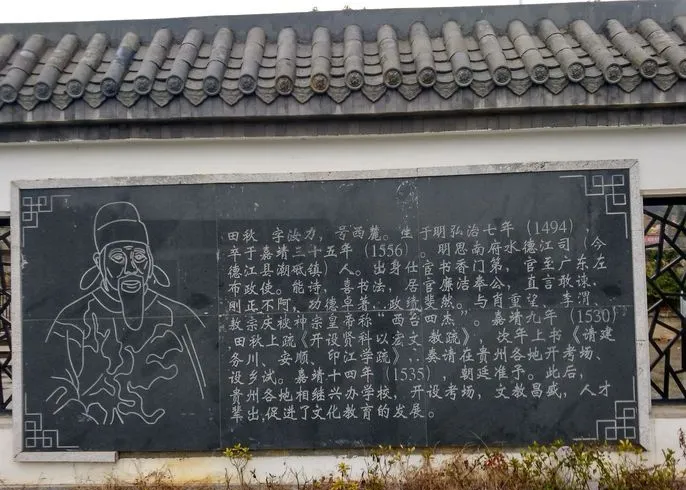 田秋 字汝力,号西麓。生于明弘治七年(1494),
卒于嘉靖三十五年(1556)。明思南府水德江司(今
德江县潮砥镇)人。出身仕宦书香门第,官至广东左
布政使。能诗,喜书法,居官廉洁奉公,直言敢谏,
刚正不阿,功德卓著,政绩斐然。与肖重望、李渭、
敖宗庆被神宗皇帝称“西台四杰”。嘉靖九年(1530)
田秋上疏《开设贤科以宏文教疏》,次年上书《请建
务川、安顺、印江学疏》,奏请在贵州各地开考场、
设乡试。嘉靖十四年(1535),朝廷准予。此后,
贵州各地相继兴办学校,开设考场,文教昌盛,人才
辈出,促进了文化教育的发展。